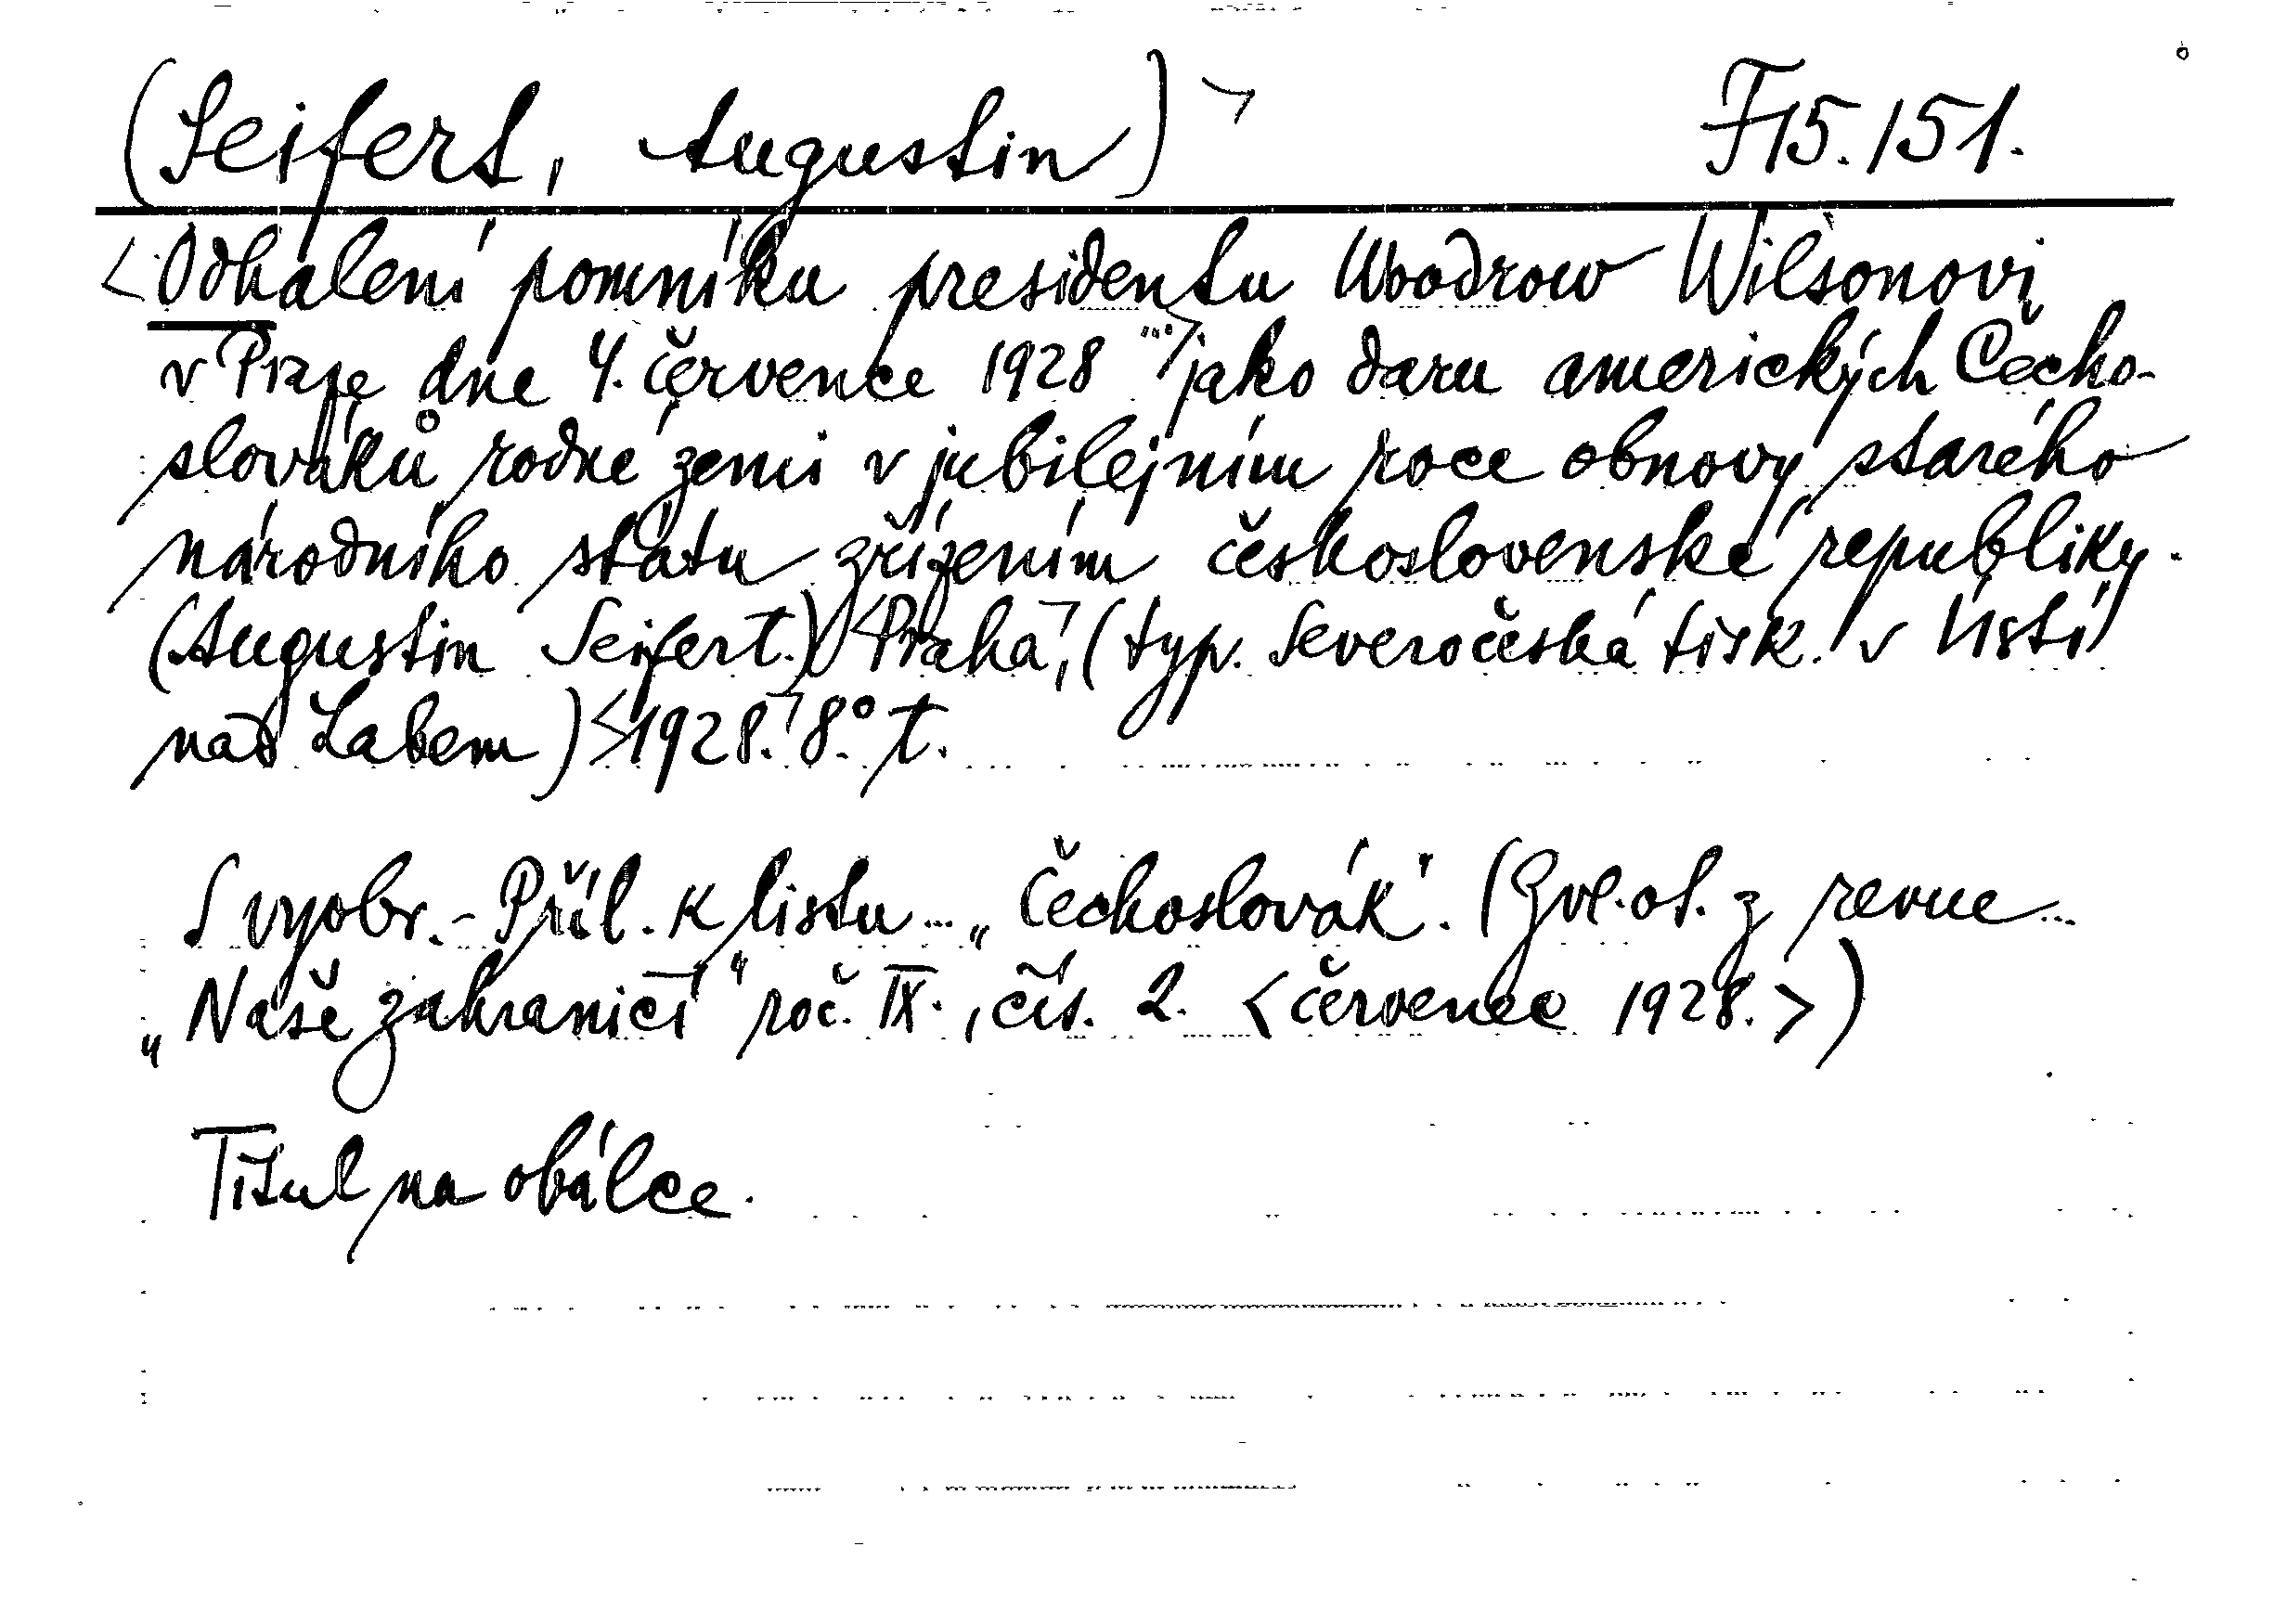 (Seifert, Augustin) F 15.151.
<Odhalení pomníku presidentu Woodrow Wilsonovi
v Praze dne 4. července 1928 ...> jako daru amerických Čecho-
slováků rodné zemi v jubilejním roce obnovy starého
národního státu zřízením československé republiky.
(Augustin Seifert.) <Praha>, (typ. Severočeská tisk. v Ústí
nad Labem) <1928.> 8° t.
S vyobr. - Příl. k listu ... „Čechoslovák". (Zvl. ot. z revue ...
„Naše zahraničí" roč. IX., čís. 2. <červenec 1928.>)
Titul na obálce.